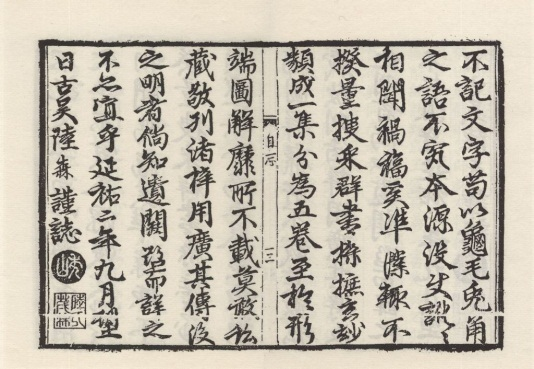 不記文字苟以龜毛兔角
之語不究本源沒
相聞禍福奚准僕輒不
揆量搜采群書撏摭玄妙
類成一集分為五卷至於形
自序
端圖解靡所不載莫敢私
藏敬刊諸梓用廣其傳後
之明者倘知遺闕改而詳之
不亦宜乎延祐二年九月望
日古吳陸森謹誌